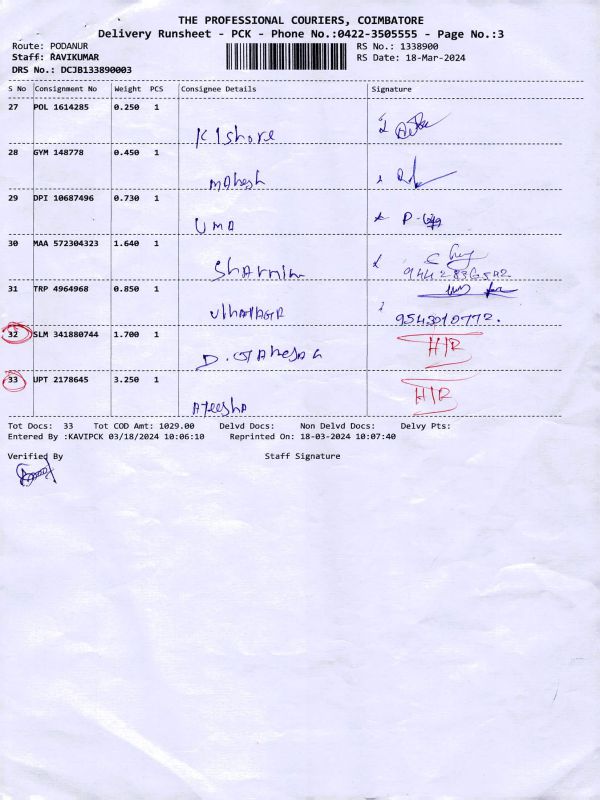 THE PROFESSIONAL COURIERS, COIMBATORE
Delivery Runsheet - PCK - Phone No.:0422-3505555 - Page No.:3
Route: PODANUR RS No.: 1338900
Staff: RAVIKUMAR RS Date: 18-Mar-2024
DRS No.: DCJB133890003
S No Consignment No Weight PCS Consignee Details Signature
27 POL 1614285 0.250 1
Kishore
28 GYM 148778 0.450 1
Mahesh
29 DPI 10687496 0.730 1
UMA
30 MAA 572304323 1.640 1
Sharmim
9442836542
31 TRP 4964968 0.850 1
9543010772.
32 SLM 341880744 1.700 1
H/R
33 UPT 2178645 3.250 1
H/R
Ayeesha
Tot Docs: 33 Tot COD Amt: 1029.00 Delvd Docs: Non Delvd Docs: Delvy Pts:
Entered By :KAVIPCK 03/18/2024 10:06:10 Reprinted On: 18-03-2024 10:07:40
Verified By Staff Signature